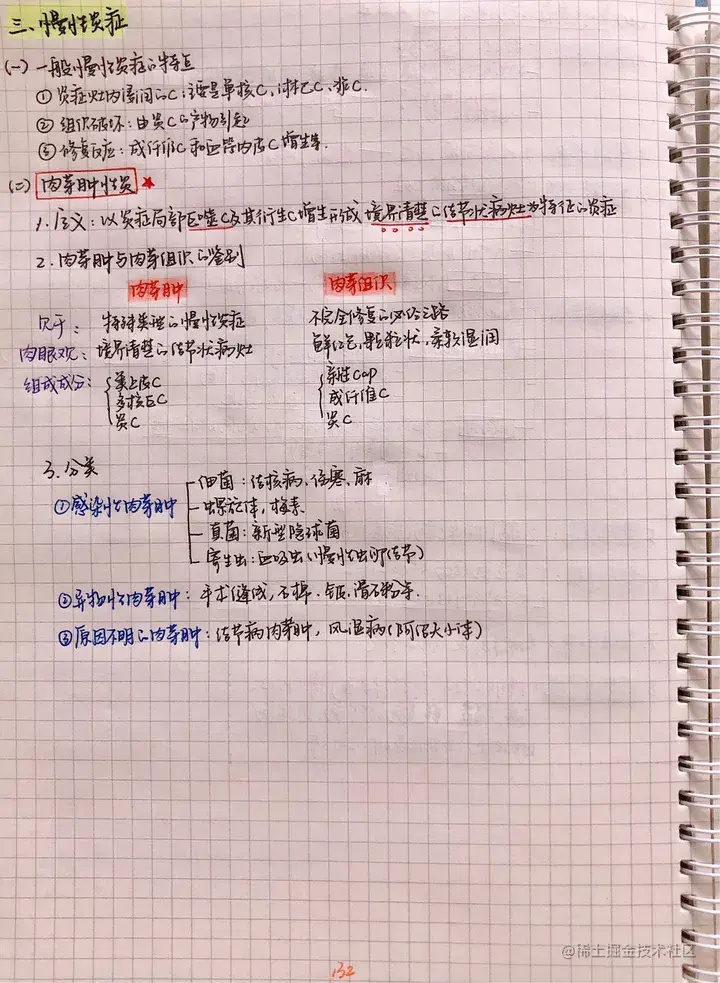 三、慢性炎症
(一) 一般慢性炎症的特点
① 炎症灶内浸润的C：主要是单核C，淋巴C、浆C.
② 组织破坏：由炎C的产物引起
③ 修复反应：成纤维C和血管内皮C增生等.
(二) 肉芽肿性炎 ★
1. 定义：以炎症局部巨噬C及其衍生C增生形成境界清楚的结节状病灶为特征的炎症
2. 肉芽肿与肉芽组织的鉴别
肉芽肿 肉芽组织
见于： 特殊类型的慢性炎症 不完全修复的必经之路
肉眼观： 境界清楚的结节状病灶 鲜红色，颗粒状，柔软湿润
组成成分： 类上皮C 新生Cap
多核巨C 成纤维C
炎C 炎C
3. 分类
①感染性肉芽肿 细菌：结核病、伤寒、麻
螺旋体，梅毒
真菌：新型隐球菌
寄生虫：血吸虫(慢性虫卵结节)
②异物性肉芽肿：手术缝线，石棉、铍，滑石粉等.
③原因不明的肉芽肿：结节病肉芽肿，风湿病(阿绍夫小体)
@稀土掘金技术社区
132